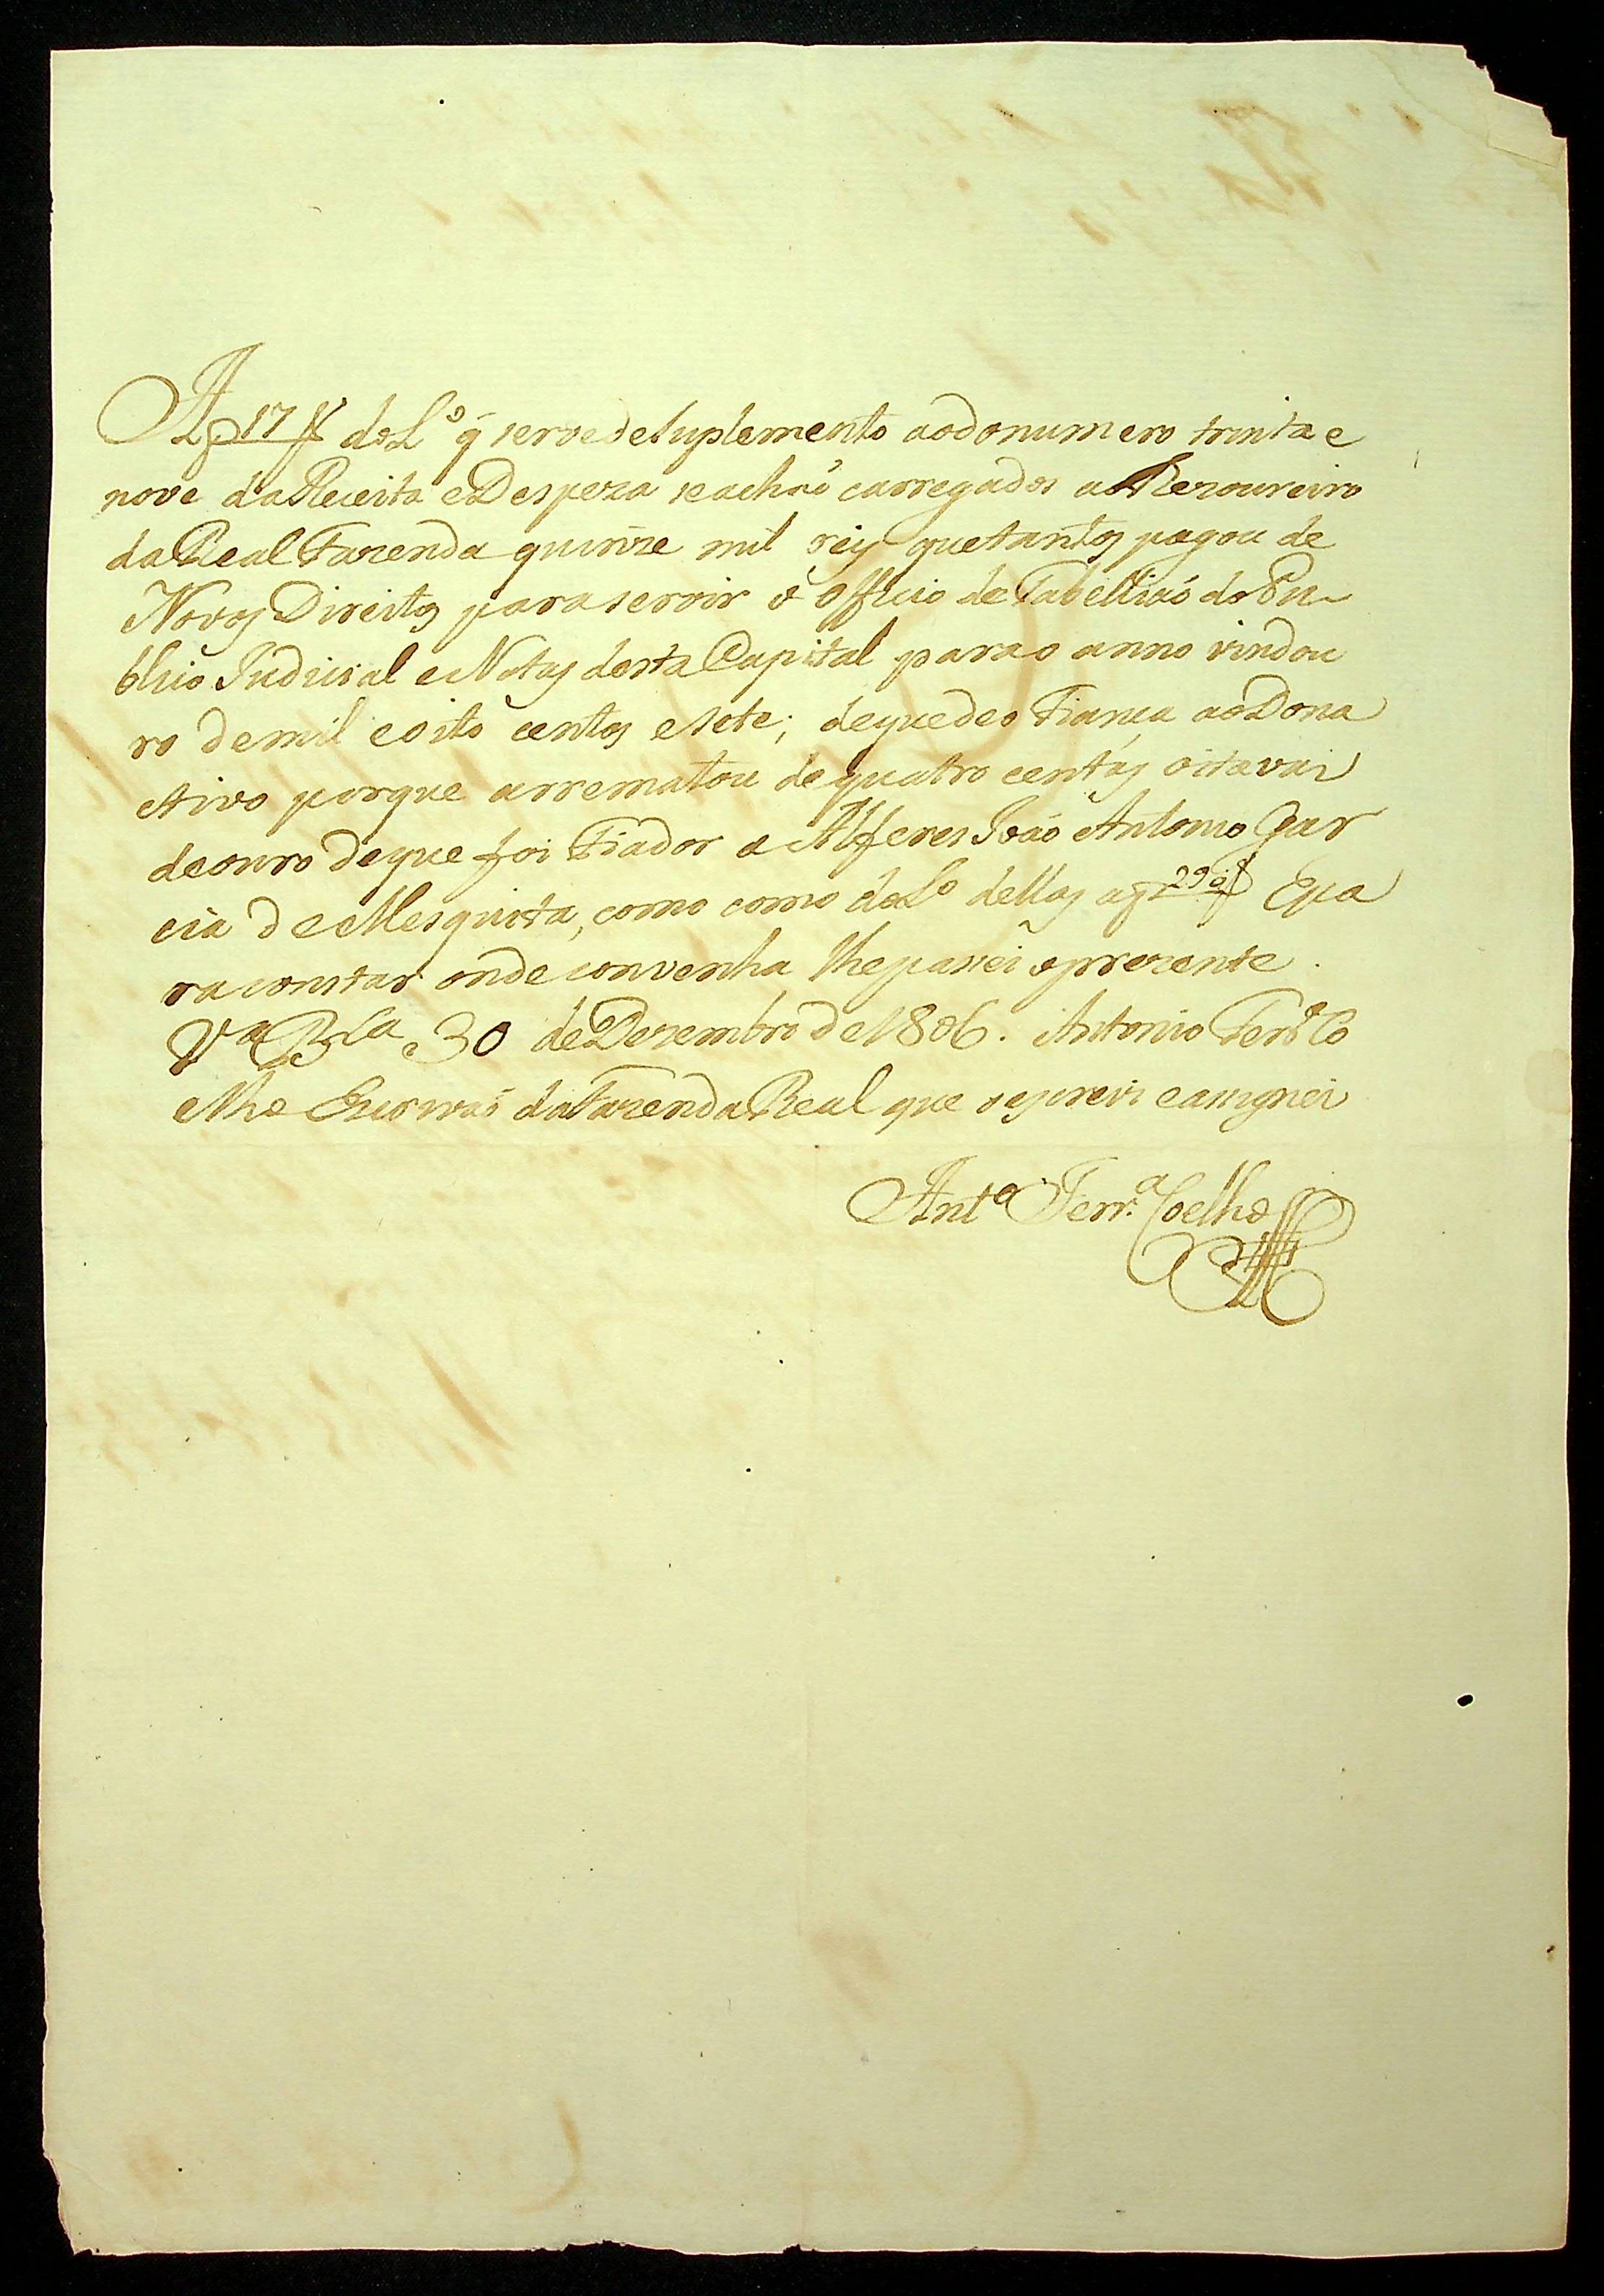 A f 17 V do L.º q̃ serve de Suplemento ao do numero trinta e
nove da Receita e Despeza se achaõ carregados ao Thezoureiro
da Real Fazenda quinze mil reis que tantos pagou de
Novos Direitos para servir o Officio de Tabelliaõ do Pu
blico Judicial e Notas desta Capital para o anno vindou
ro de mil e oito centos e sete; de que deo Fiança ao Dona
tivo porque arrematou de quatro centas oitavas
de ouro de que foi Fiador o Alferes Joaõ Antonio Gar
cia de Mesquita, como como do L.º dellas a f 29 E pa
ra constar onde convenha lhe passei o prezente.
V.ª B.la a 30 de Dezembro de 1806. Antonio Ferr.ª Co
elho Escrivaõ da Fazenda Real que o escrevi e assignei
Ant.º Ferr.ª Coelho